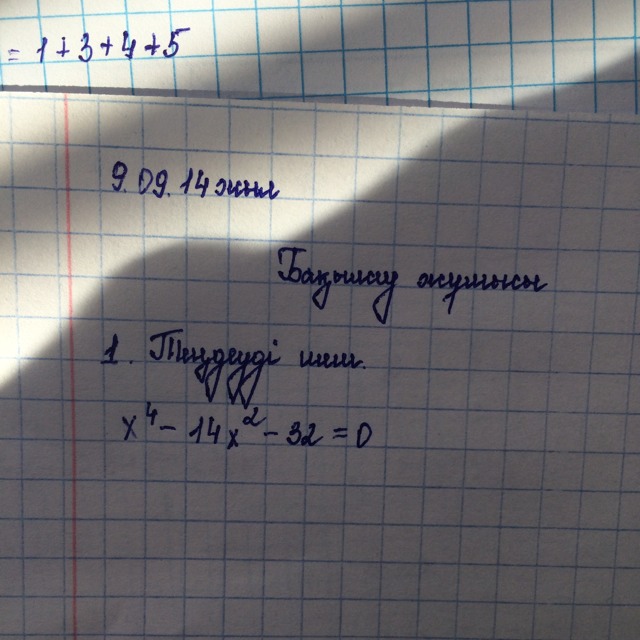 = 1+3+4+5
9.09.14 жыл
Бақылау жұмысы
1. Теңдеуді шеш.
x⁴ - 14x² - 32 = 0